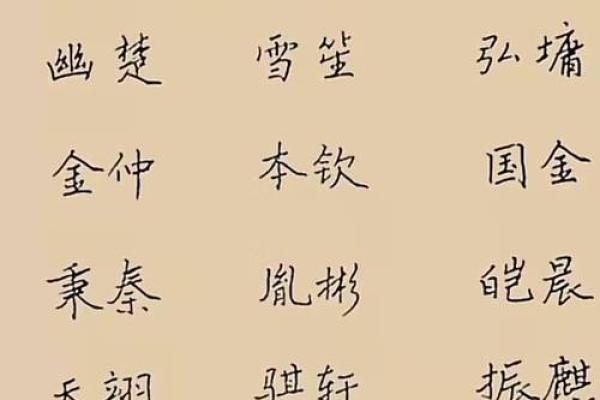 幽楚 雪笙 弘墉
金仲 本钦 国金
秉秦 胤彬 皑晨
天翊 骐轩 振麒